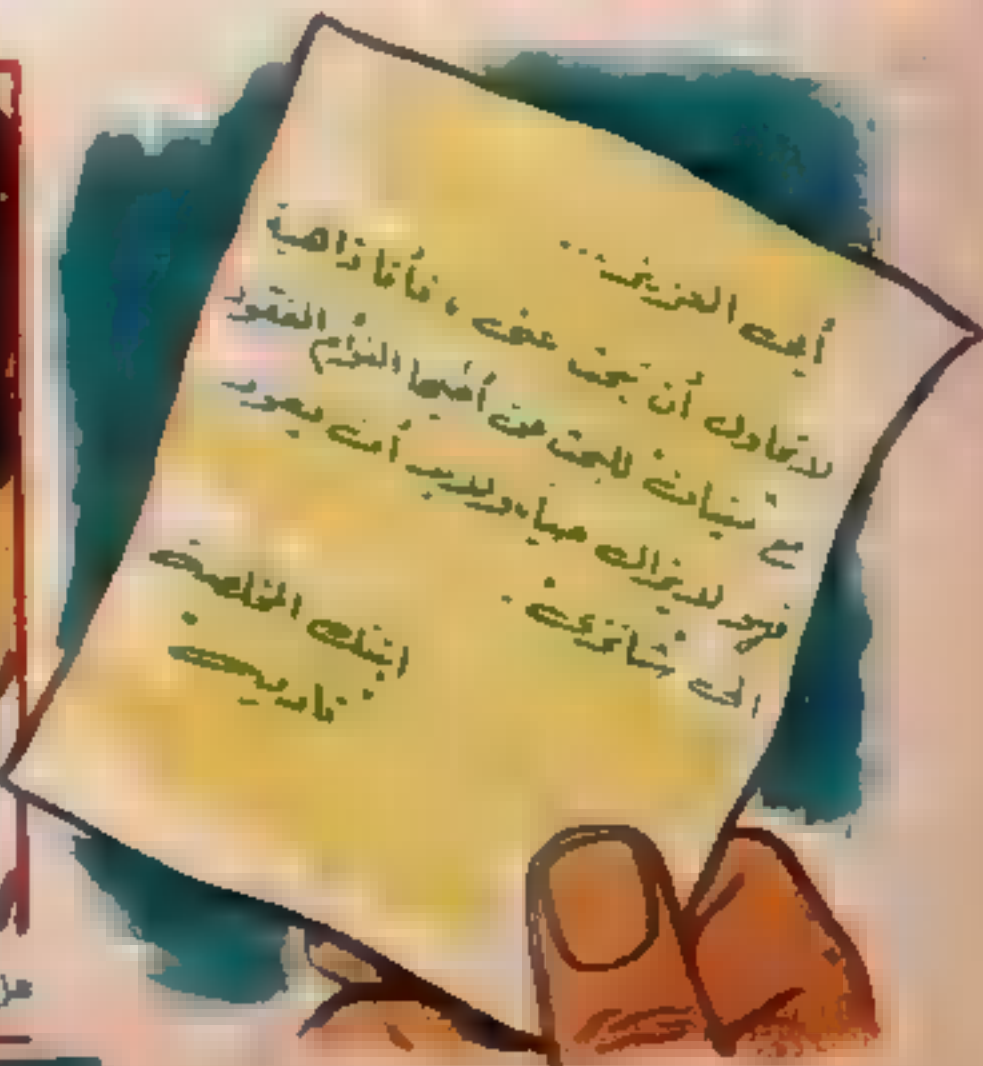 أبي العزيز...
لا تحاول أن تبحث عني، فأنا ذاهبة
مع للبحث عن أخيها التوأم المفقود
فهو لا يزال حياً، ولا بد أن يعود
إلى
ابنتك المخلصة
نادين